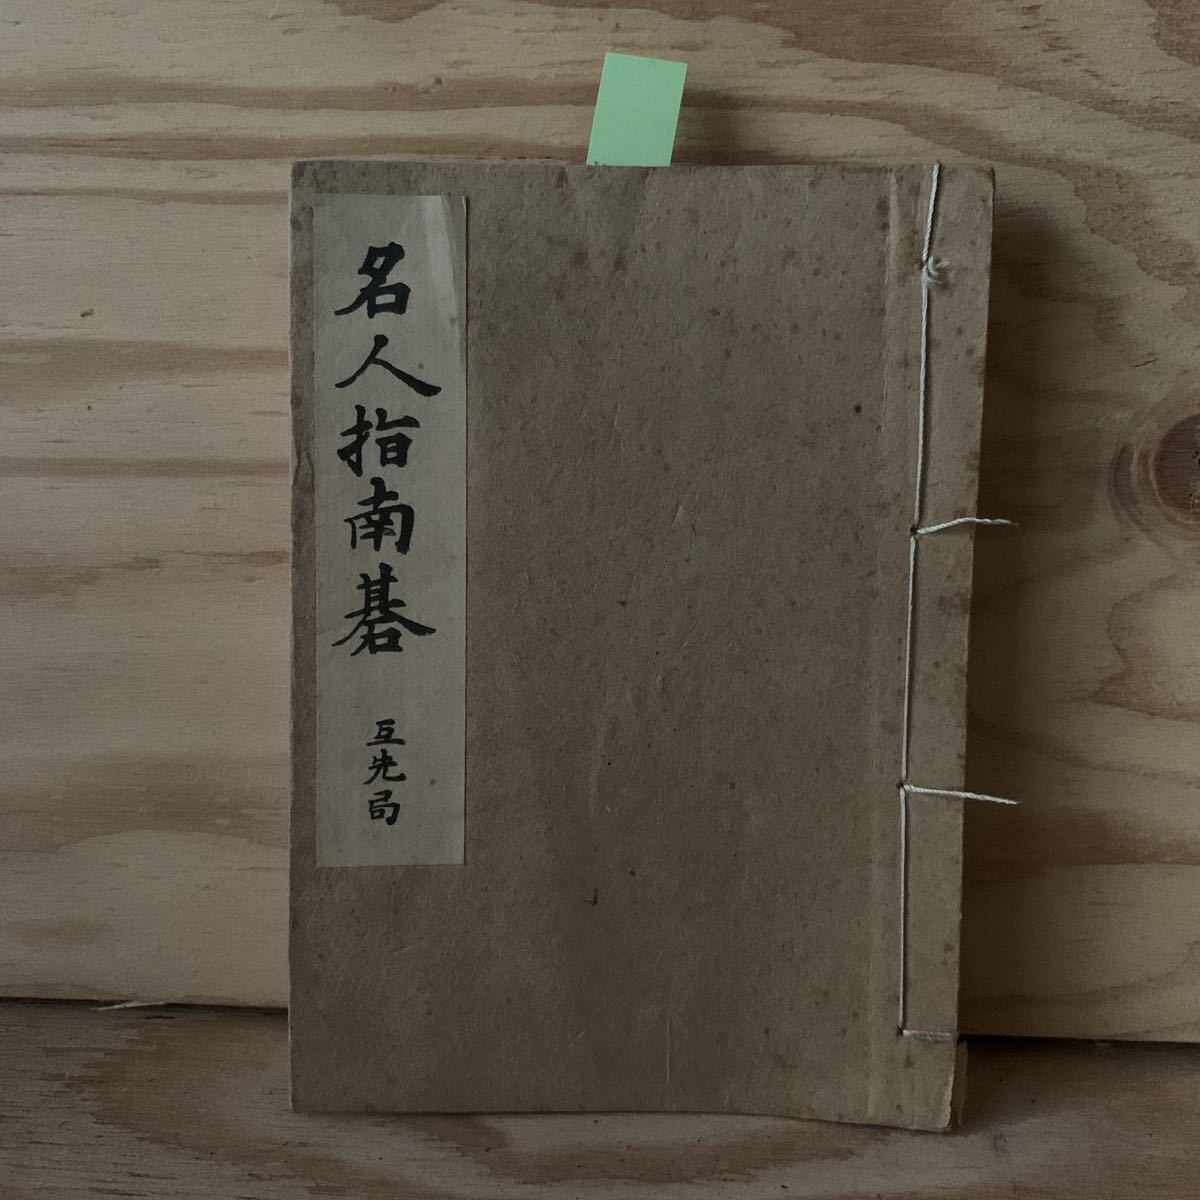 名人指南碁
互先局